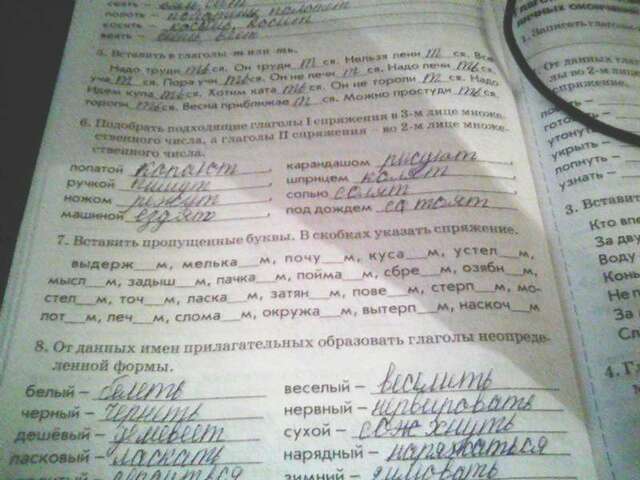 сеять –
полоть – полотит полотят
косить – косить косит
веять –
5. Вставить в глаголы т или ть.
Надо труди ть ся. Он труди т ся. Нельзя лени ть ся. Все
учи т ся. Пора учи ть ся. Он не лени т ся. Надо лечи ть ся.
Идём купа ть ся. Хотим ката ть ся. Он не торопи т ся. Надо
торопи ть ся. Весна приближае т ся. Можно простуди ть ся.
6. Подобрать подходящие глаголы I спряжения в 3-м лице множе-
ственного числа, а глаголы II спряжения – во 2-м лице множе-
ственного числа.
лопатой копают, карандашом рисуют,
ручкой пишут, шприцем колят,
ножом режут, солью солят,
машиной ездят, под дождем
7. Вставить пропущенные буквы. В скобках указать спряжение.
выдерж__м, мелька__м, почу__м, куса__м, устел__м,
мысл__м, задыш__м, пачка__м, пойма__м, сбре__м, озябн__м,
стел__м, точ__м, ласка__м, затян__м, пове__м, стерп__м, мо-
лот__м, леч__м, слома__м, окружа__м, вытерп__м, наскоч__м
8. От данных имен прилагательных образовать глаголы неопреде-
ленной формы.
белый – белеть веселый – веселить
черный – чернить нервный – нервировать
дешёвый – сухой –
ласковый – ласкать нарядный – наряжаться
зимний – зимовать
1. Записать глаго
От данных глаг
лы во 2-м лице
спряжение.
гото
утонут
укрыть –
лопнуть –
узнать –
3. Вставит
Кто вп
За дву
Воду
Кон
Не п
За
Сл
4. Г